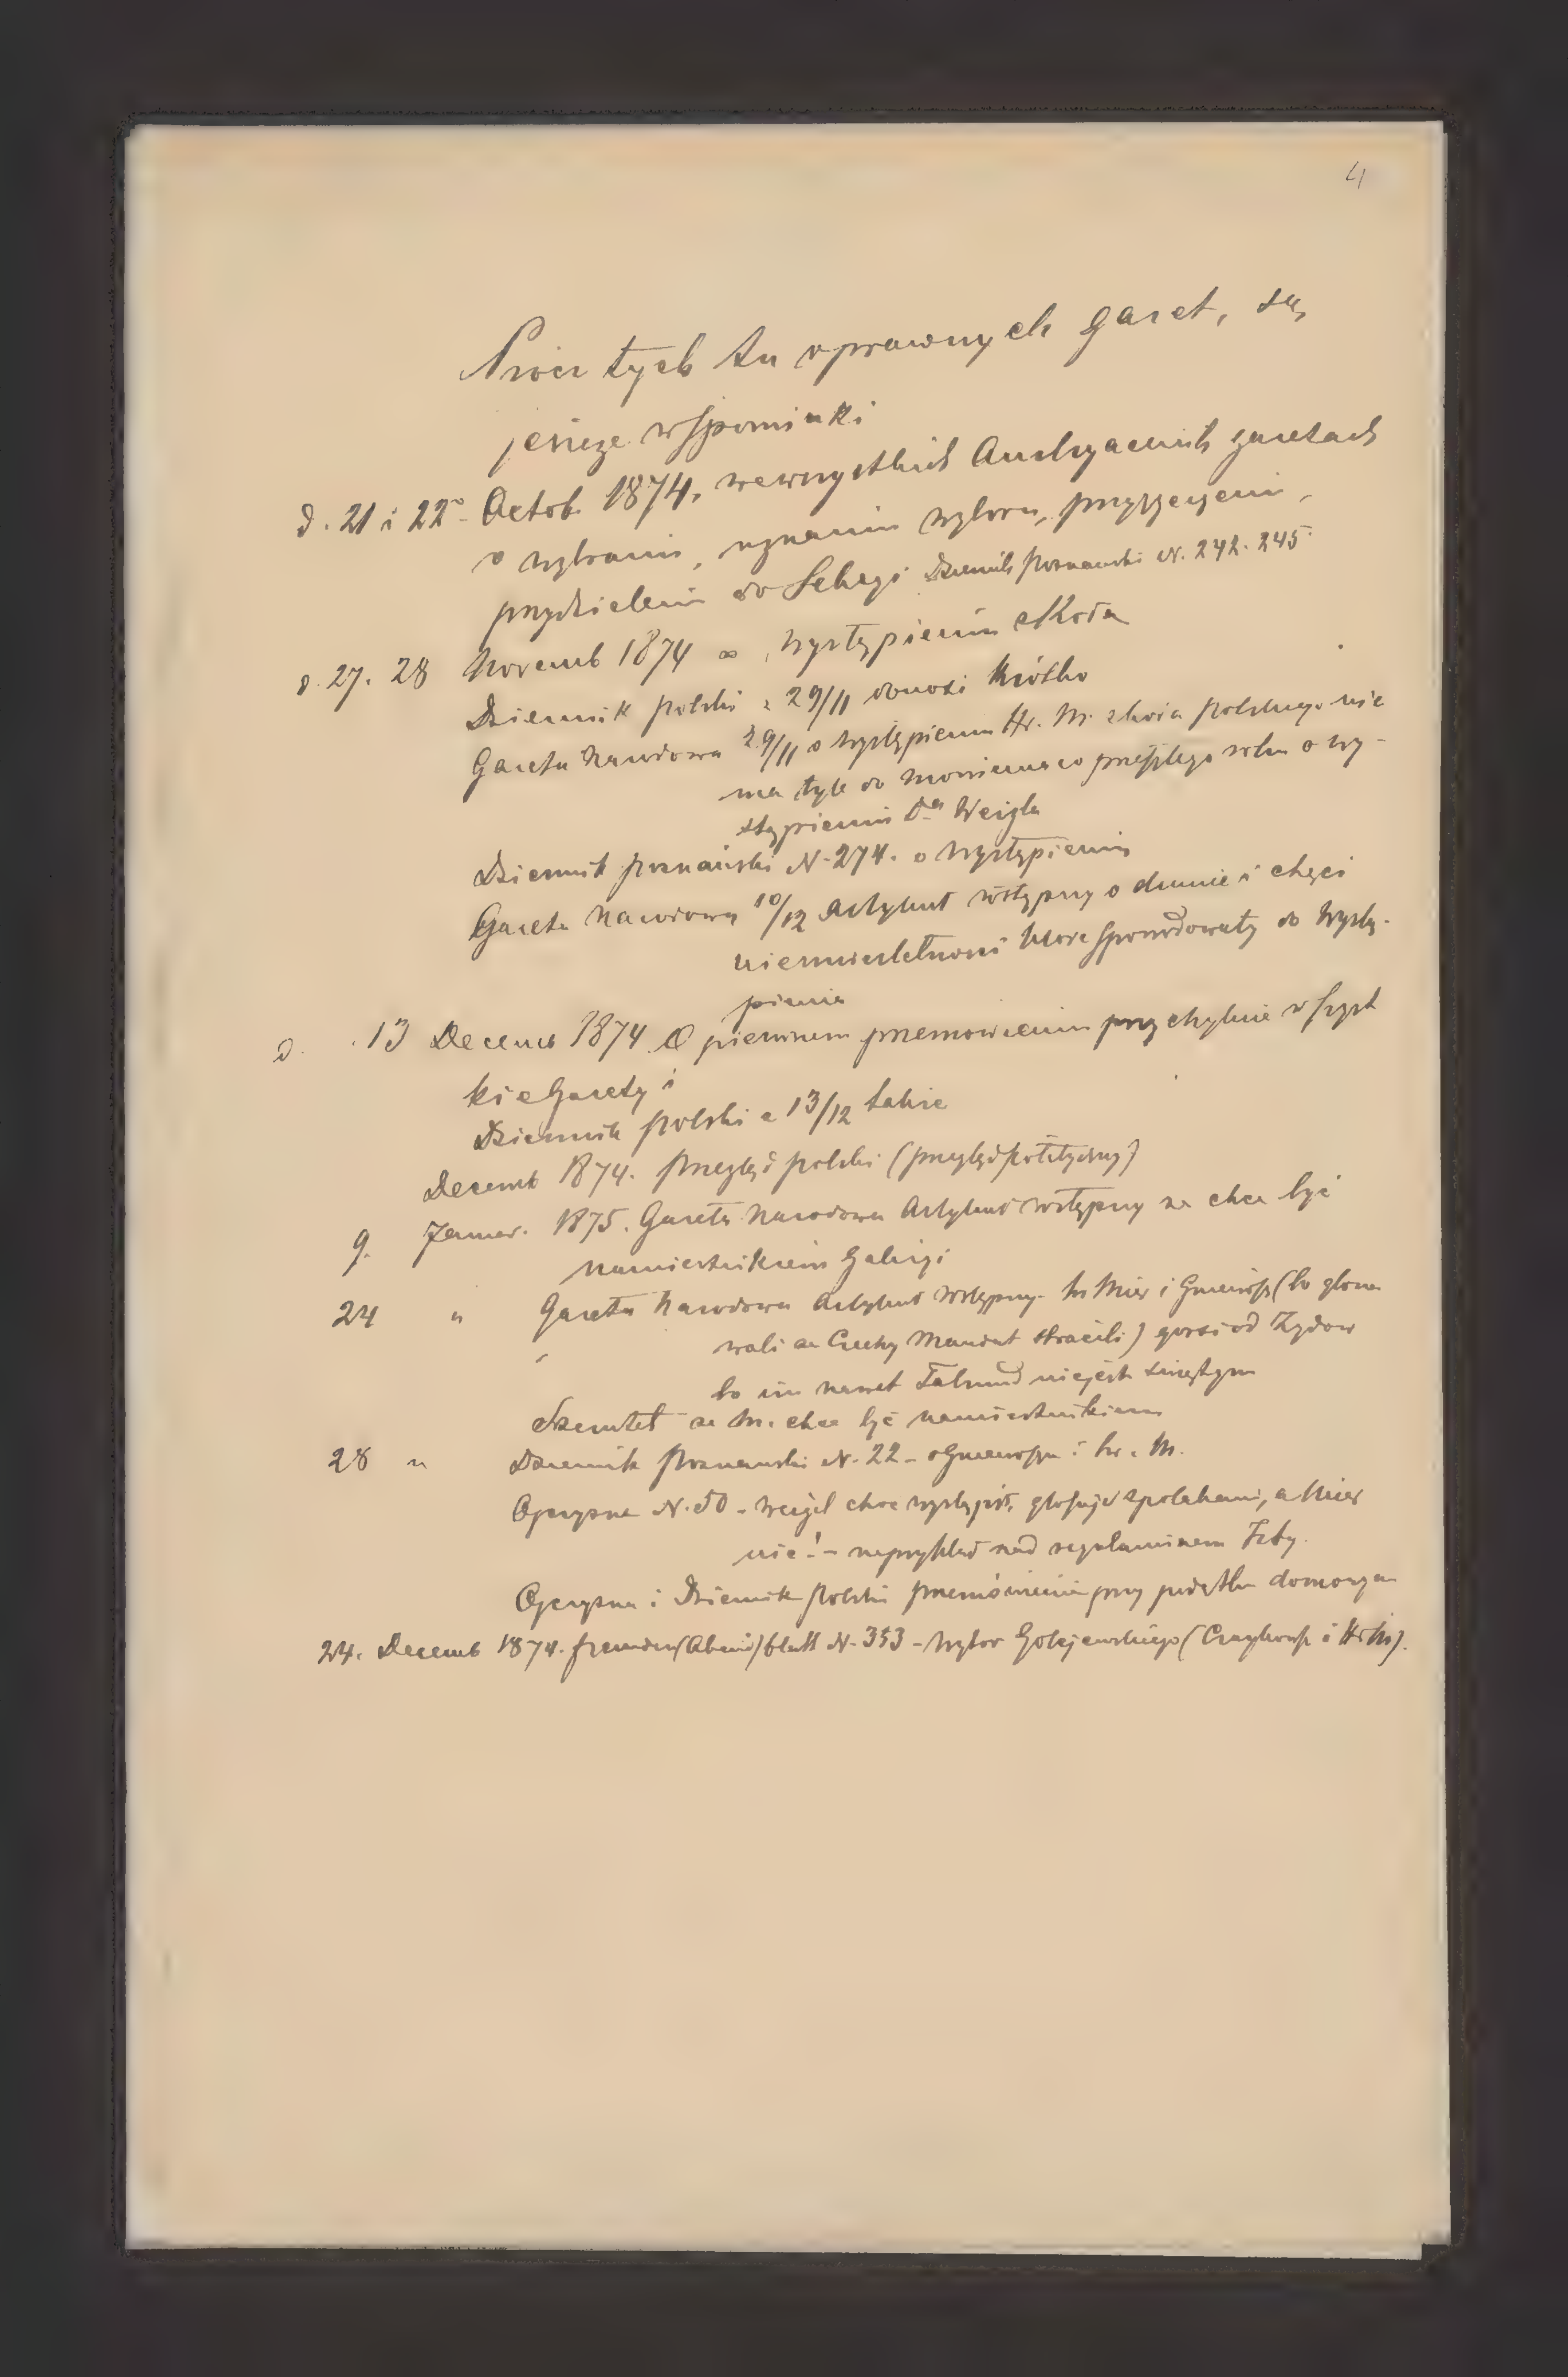 4
Prócz tych tu oprawnych gazet, są
jeszcze wspominki
d. 21 i 22 Octob. 1874, wewszystkich Austryackich gazetach
o wybraniu, uznaniu wyboru, przyszyciem,
przydzieleniu do Sekcyi Dziennik Poznański N. 242. 245.
d. 27. 28 Novemb 1874 o wystąpieniu z Koła
Dziennik Polski z 29/11 donosi krótko
Gazeta Narodowa 29/11 o wystąpieniu Hr. M. z koła polskiego nie
ma tyle do mówienia co przeszłego roku o wy-
stąpieniu Dra Weigla
Dziennik Poznański N. 274. o wystąpieniu
Gazeta Narodowa 10/12 Artykuł wstępny o dumie i chęci
które spowodowały do wystą-
pienia
d. 13 Decemb 1874 O pierwszem przemówieniu przychylnie wszyst
kie Gazety i
Dziennik Polski z 13/12 także
Decemb 1874. Przegląd polski (przegląd polityczny)
9. Januar. 1875. Gazeta Narodowa Artykuł wstępny że chce być
namiestnikiem Galicyi
24 " Gazeta Narodowa Artykuł wstępny. hr Mier i (bo głoso
wali że Czechy Mandat stracili) gorsi od Żydów
bo im nawet Talmud niejest świętym
że M. chce być namiestnikiem
28 " Dziennik Poznański N. 22 - o i hr. M.
Ojczyzna N. 50 - Weigel chce wystąpić, głosuje z polakami, a Mier
nie! - naprzykład nad regulaminem Izby.
Ojczyzna i Dziennik Polski przemówienie przy podatku domowym
24. Decemb 1874. Fremden (Abend) blatt N. 353 - wybor Golejewskiego ( i Hr M).